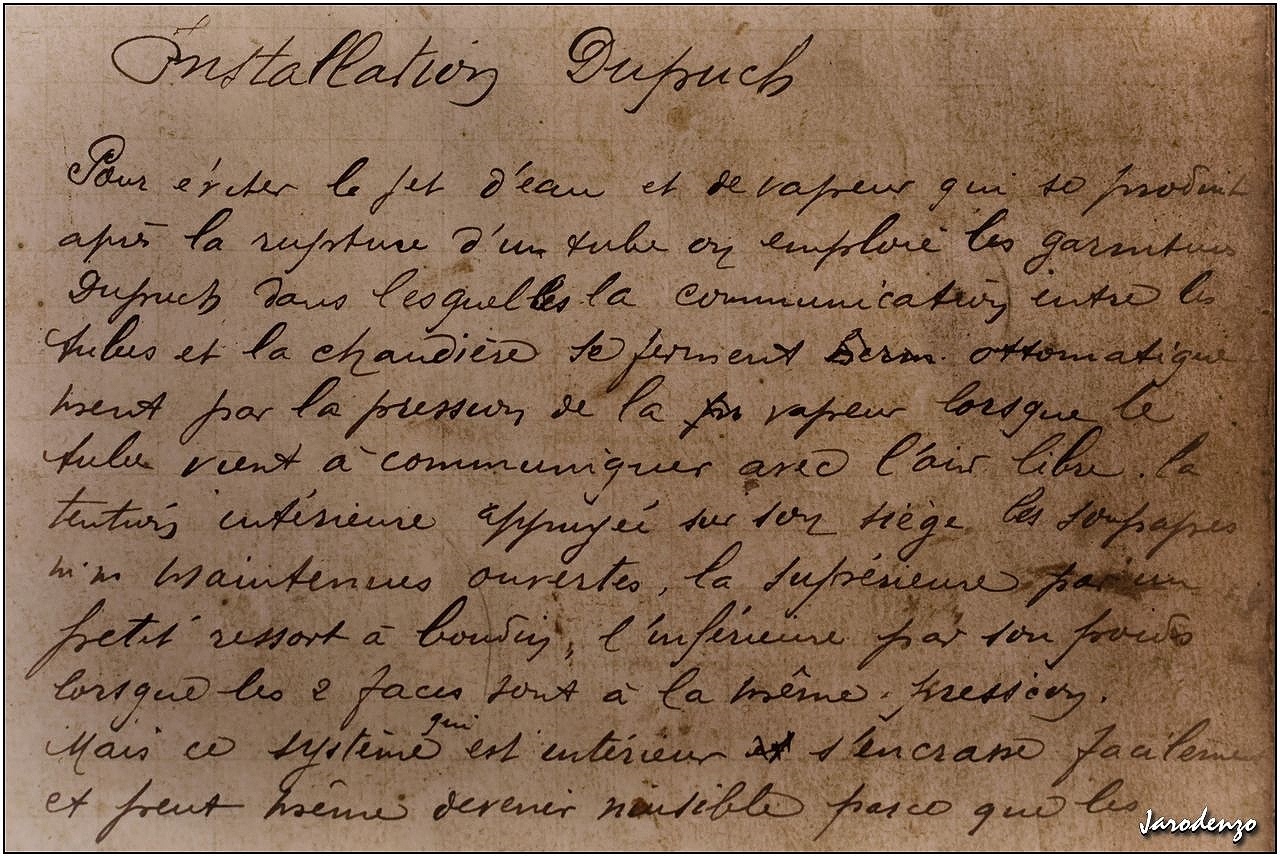 Installation Dupuch
Pour éviter le jet d'eau et de vapeur qui se produit
après la rupture d'un tube on emploie les garnitures
Dupuch dans lesquelles la communication entre les
tubes et la chaudière se ferment ottomatique
ment par la pression de la vapeur lorsque le
tube vient à communiquer avec l'air libre. la
intérieure appuyée sur son siège les soupapes
maintenues ouvertes, la supérieure par un
petit ressort à boudin, l'inférieure par son poids
lorsque les 2 faces sont à la même pression.
Mais ce système qui est intérieur s'encrasse facileme
et peut même devenir nuisible parce que les
Jarodenzo